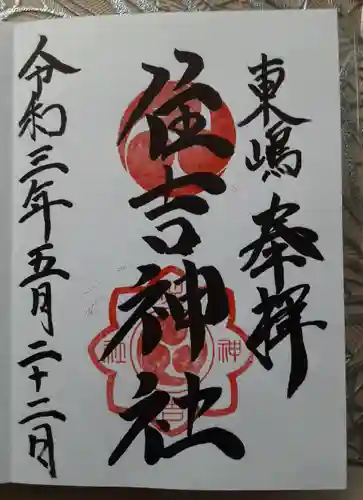 東嶋 奉拝
住吉神社
令和三年五月二十二日
住
神
吉
社